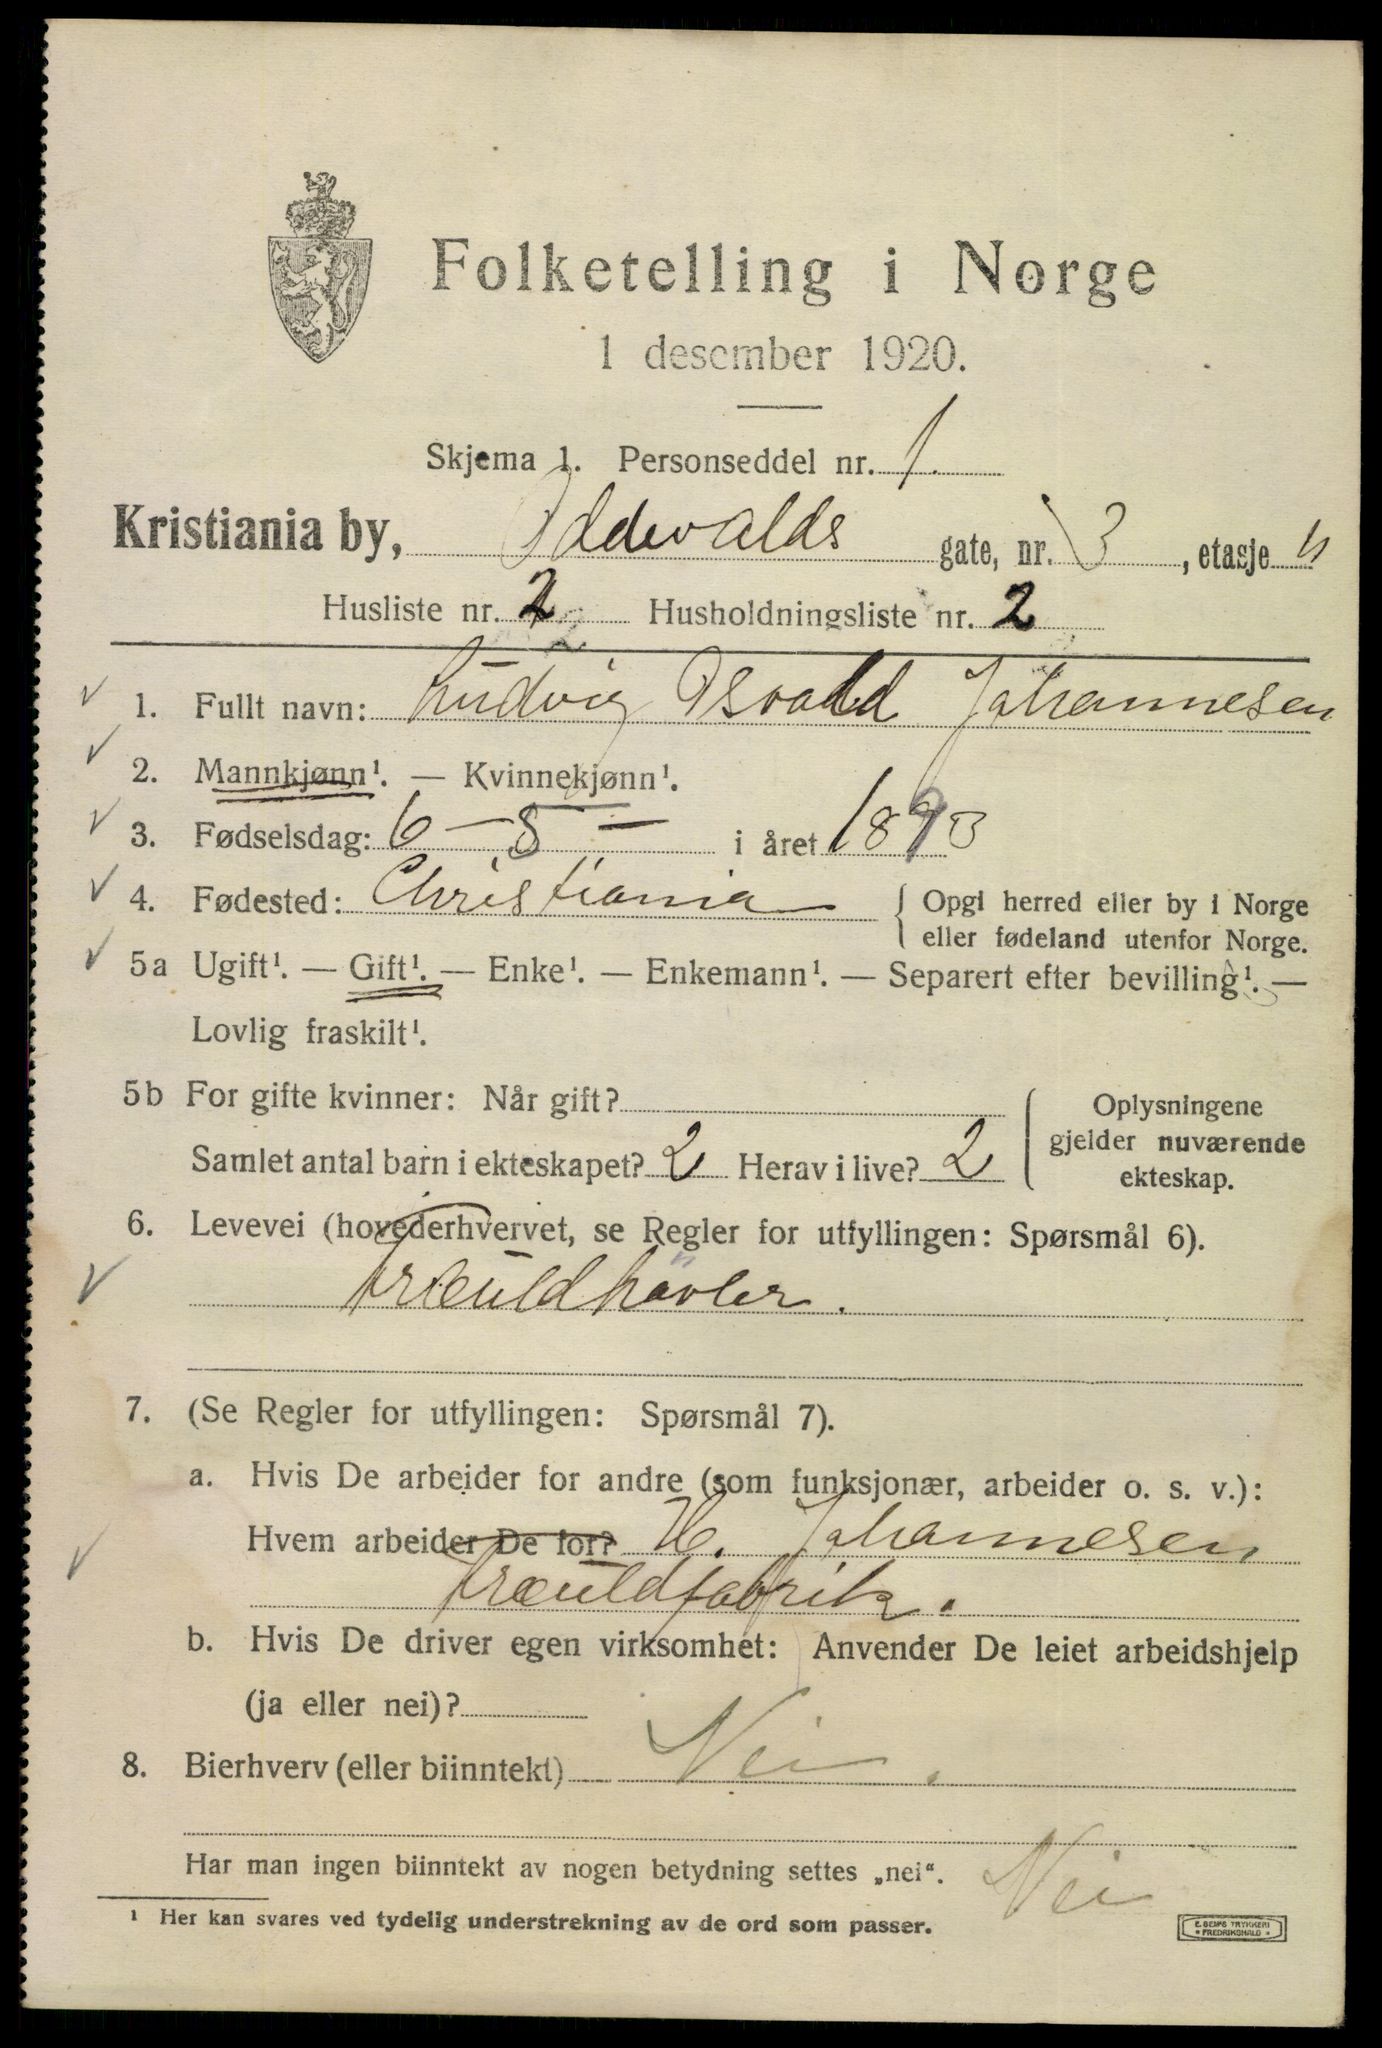 Folketelling i Norge
1 desember 1920.
Skjema 1. Personseddel nr. 1.
Kristiania by, Oddevalds gate, nr. 3, etasje II
Husliste nr. 2 Husholdningsliste nr. 2
1. Fullt navn: Ludvig Osvald Johannesen
2. Mannkjønn¹. — Kvinnekjønn¹.
3. Fødselsdag: 6 – 5 – i året 1893
4. Fødested: Christiania { Opgi herred eller by i Norge
eller fødeland utenfor Norge.
5a Ugift¹. — Gift¹. — Enke¹. — Enkemann¹. — Separert efter bevilling¹. —
Lovlig fraskilt¹.
5b For gifte kvinner: Når gift? { Oplysningene
gjelder nuværende
ekteskap.
Samlet antal barn i ekteskapet? 2 Herav i live? 2
6. Levevei (hovederhvervet, se Regler for utfyllingen: Spørsmål 6).
Træuldhøvler.
7. (Se Regler for utfyllingen: Spørsmål 7).
a. Hvis De arbeider for andre (som funksjonær, arbeider o. s. v.):
Hvem arbeider De for? H. Johannesen
Træuldfabrik.
b. Hvis De driver egen virksomhet: Anvender De leiet arbeidshjelp
(ja eller nei)?
8. Bierhverv (eller biinntekt) Nei.
Har man ingen biinntekt av nogen betydning settes „nei“. Nei
¹ Her kan svares ved tydelig understrekning av de ord som passer.
E. SEM'S TRYKKERI
FREDRIKSHALD